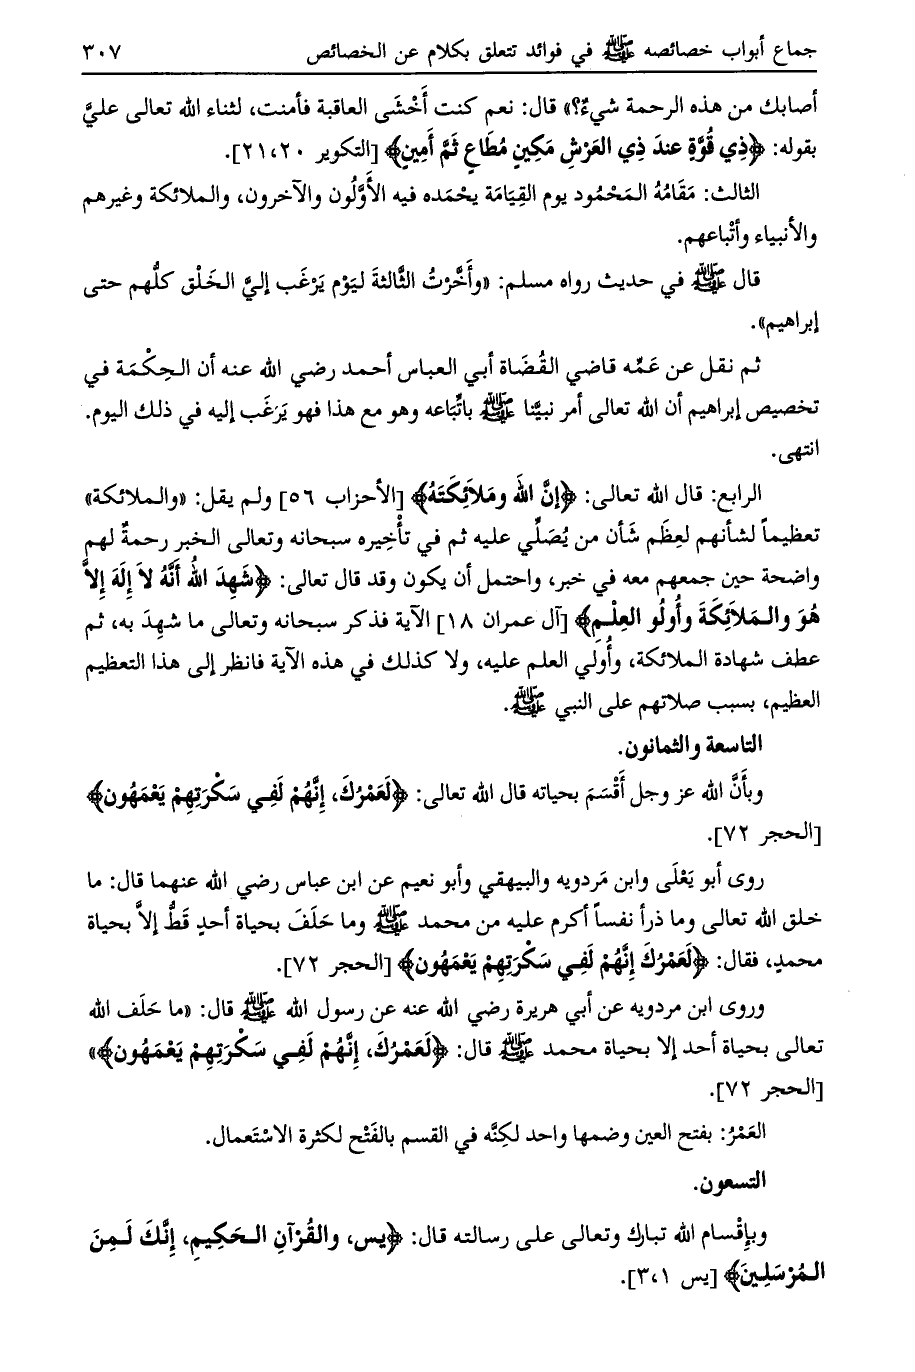 جماع أبواب خصائصه ﷺ في فوائد تتعلق بكلام عن الخصائص ٣٠٧
أصابك من هذه الرحمة شيءٌ؟» قال: نعم كنت أَخْشَى العاقبة فأمنت، لثناء الله تعالى عليَّ
بقوله: ﴿ذِي قُوَّةٍ عندَ ذِي العَرْشِ مَكِينٍ مُطَاعٍ ثَمَّ أَمِينٍ﴾ [التكوير ٢١،٢٠].
الثالث: مَقَامُهُ المَحْمُود يوم القِيَامَة يحْمَده فيه الأَوَّلُون والآخرون، والملائكة وغيرهم
والأنبياء وأتْباعهم.
قال ﷺ في حديث رواه مسلم: «وأَخَّرْتُ الثَّالثةَ ليَوْم يَرْغَب إليَّ الخَلْق كلُّهم حتى
إبراهيم».
ثم نقل عن عَمِّه قاضي القُضَاة أبي العباس أحمد رضي الله عنه أن الحِكْمَة في
تخصيص إبراهيم أن الله تعالى أمر نبيَّنا ﷺ باتِّبَاعه وهو مع هذا فهو يَرْغَب إليه في ذلك اليوم.
انتهى.
الرابع: قال الله تعالى: ﴿إنَّ اللهَ ومَلاَئِكَتَهُ﴾ [الأحزاب ٥٦] ولم يقل: «والملائكة»
تعظيماً لشأنهم لعِظَم شَأن من يُصَلِّي عليه ثم في تأْخِيره سبحانه وتعالى الخبر رحمةٌ لهم
واضحة حين جمعهم معه في خبر، واحتمل أن يكون وقد قال تعالى: ﴿شَهِدَ اللهُ أنَّهُ لاَ إلَهَ إلاَّ
هُوَ والمَلاَئِكَةَ وأُولُو العِلْمِ﴾ [آل عمران ١٨] الآية فذكر سبحانه وتعالى ما شهِدَ به، ثم
عطف شهادة الملائكة، وأُولي العلم عليه، ولا كذلك في هذه الآية فانظر إلى هذا التعظيم
العظيم، بسبب صلاتهم على النبي ﷺ.
التاسعة والثمانون.
وبأَنَّ الله عز وجل أَقْسَمَ بحياته قال الله تعالى: ﴿لَعَمْرُكَ، إنَّهُمْ لَفِي سَكْرَتِهِمْ يَعْمَهُون﴾
[الحجر ٧٢].
روى أبو يَعْلَى وابن مَردويه والبيهقي وأبو نعيم عن ابن عباس رضي الله عنهما قال: ما
خلق الله تعالى وما ذرأ نفساً أكرم عليه من محمد ﷺ وما حَلَفَ بحياة أحدٍ قَطُّ إلاَّ بحياة
محمدٍ، فقال: ﴿لَعَمْرُكَ إنَّهُمْ لَفِي سَكْرَتِهِمْ يَعْمَهُون﴾ [الحجر ٧٢].
وروى ابن مردويه عن أبي هريرة رضي الله عنه عن رسول الله ﷺ قال: «ما حَلَف الله
تعالى بحياة أحد إلا بحياة محمد ﷺ قال: ﴿لَعَمْرُكَ، إنَّهُمْ لَفِي سَكْرَتِهِمْ يَعْمَهُون﴾»
[الحجر ٧٢].
العَمْرُ: بفتح العين وضمها واحد لكِنَّه في القسم بالفَتْح لكثرة الاسْتَعمال.
التسعون.
وبإِقْسام الله تبارك وتعالى على رسالته قال: ﴿يس، والقُرْآنِ الحَكِيمِ، إنَّكَ لَمِنَ
المُرْسَلِينَ﴾ [يس ٣،١].